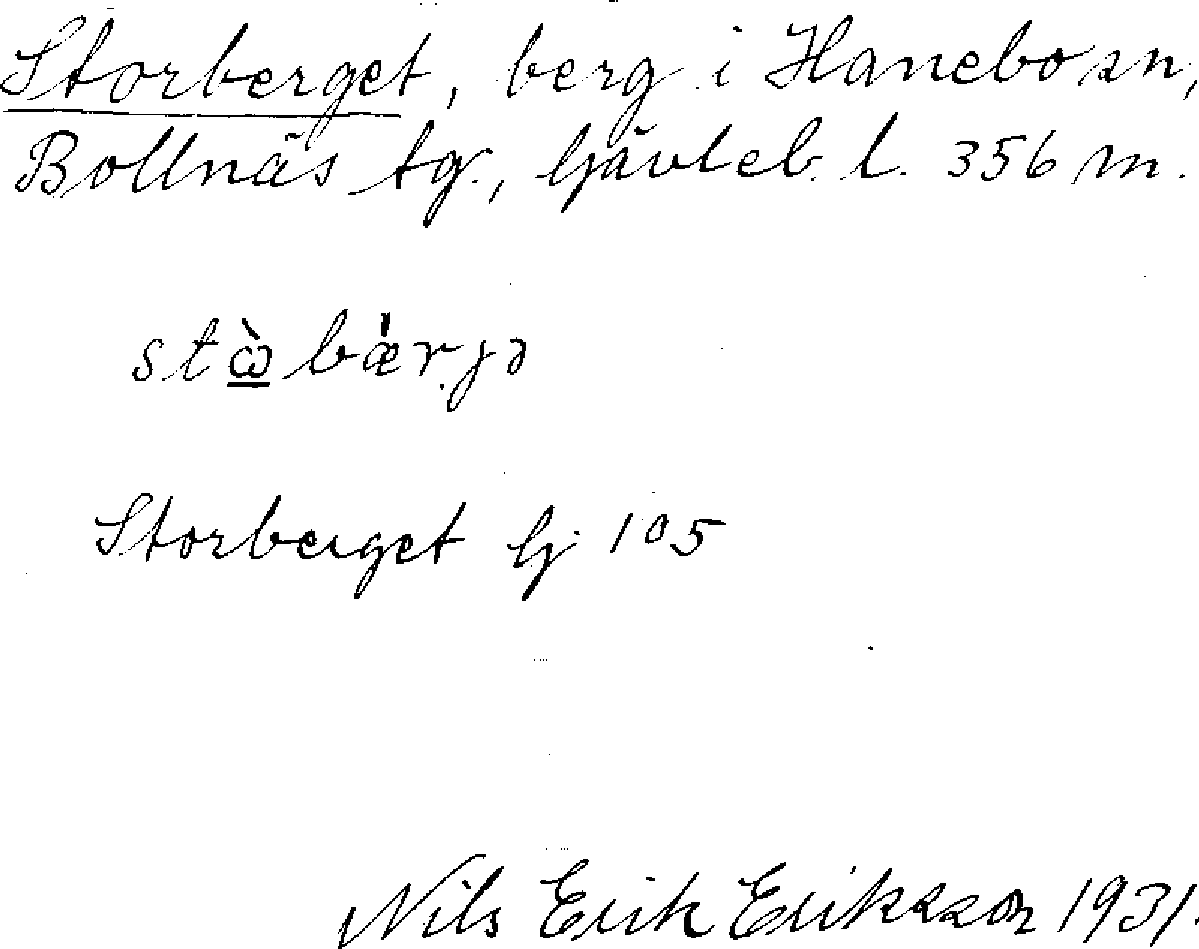 Storberget, berg i Hanebo sn,
Bollnäs tg., Gävleb. l. 356 m.
stὼ̲bǽrjə
Storberget Gj 105
Nils Erik Eriksson 1931.